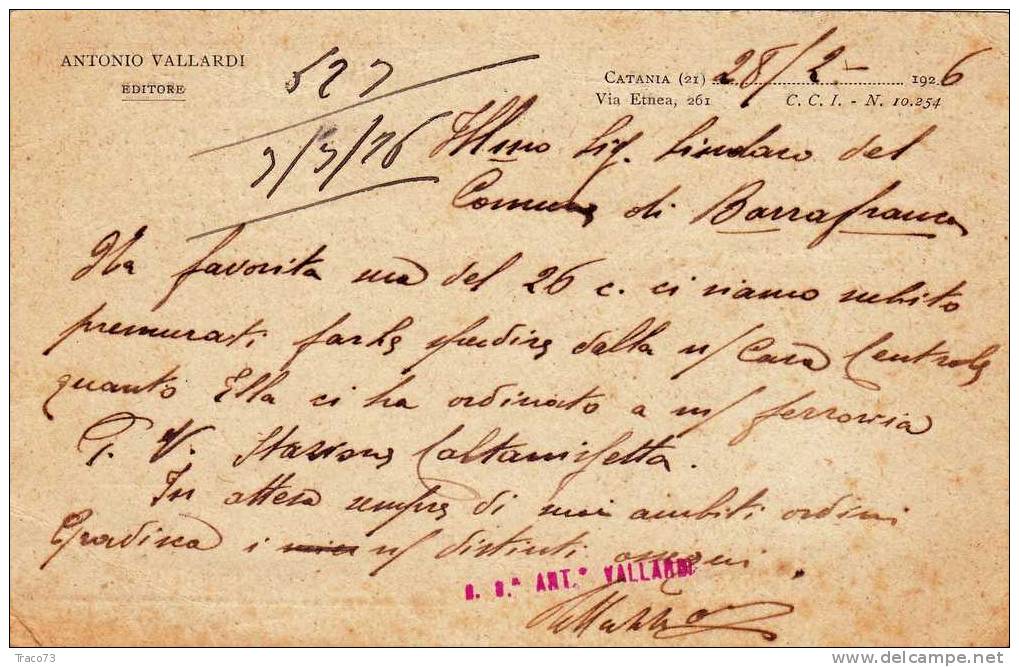 ANTONIO VALLARDI
EDITORE
527
3/3/26
CATANIA (21) 28/2 - 1926
Via Etnea, 261 C. C. I. - N. 10.254
Ill.mo Sig. Sindaco del
Comune di Barrafranca
favorita sua del 26 c. ci siamo subito
premurati farle spedire dalla n/ Casa Centrale
quanto Ella ci ha ordinato a m/ ferrovia
P. V. Stazione Caltanissetta.
In attesa sempre di suoi ambiti ordini
Gradisca i n/ distinti ossequi.
ANT.° VALLARDI
Traco73
www.delcampe.net